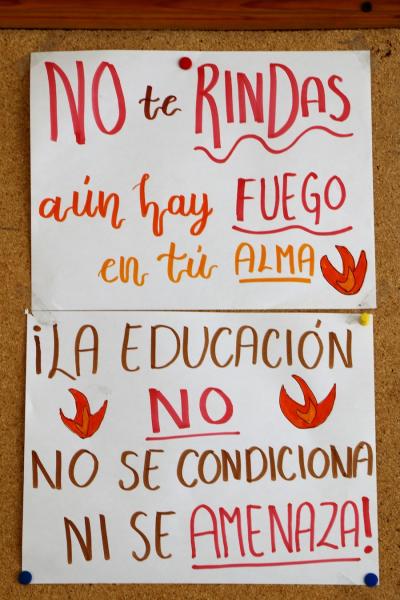 NO te RINDAS
aún hay FUEGO
en tú ALMA
¡LA EDUCACIÓN
NO
NO SE CONDICIONA
NI SE AMENAZA!